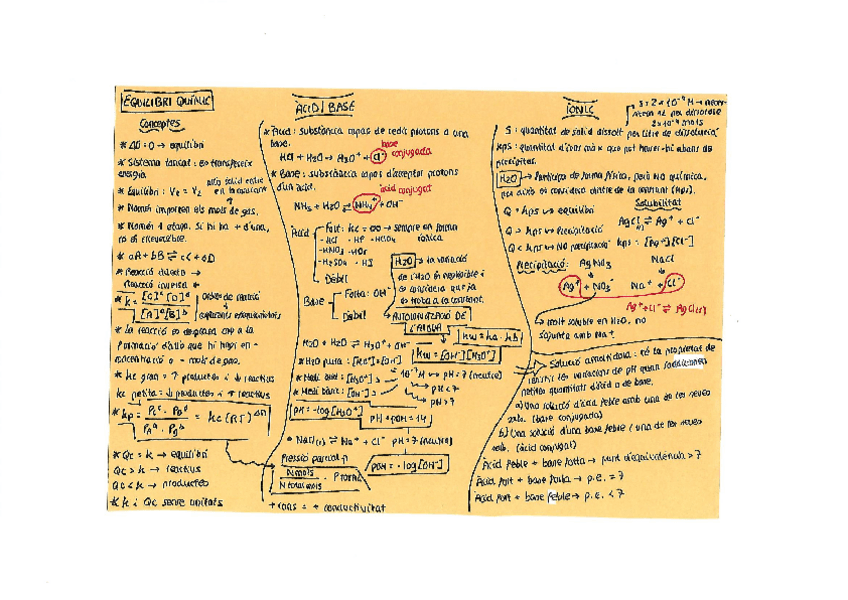 EQUILIBRI QUÍMIC
Conceptes
* ΔG = 0 → equilibri
* Sistema tancat: es transfereix
energia
* Equilibri: Ve = V2
* Només importen els mols de gas.
* Només 1 etapa. Si hi ha + d'una,
és irreversible.
* aA + bB ⇌ cC + dD
* Reacció directa →
Reacció inversa ←
* k = [C]^c [D]^d / [A]^a [B]^b
* La reacció es desplaça cap a la
formació d'allò que hi hagi en -
concentració o - mols de gas.
* kc gran = ↑ productes i ↓ reactius
kc petita = ↓ productes i ↑ reactius
* kp = Pc^c · PD^d / PA^a · PB^b = kc (RT)^Δn
* Qc = k → equilibri
Qc > k → reactius
Qc < k → productes
* k i Qc sense unitats
ÀCID / BASE
* Àcid: substància capaç de cedir protons a una
base.
base
HCl + H2O → H3O+ + Cl- conjugada
* Base: substància capaç d'acceptar protons
d'un àcid.
àcid conjugat
NH3 + H2O ⇌ NH4+ + OH-
Àcid
Fort: kc = ∞ → sempre en forma
iònica
- HCl - HF - HClO4
- HNO3 - HBr
- H2SO4 - HI
Dèbil
Base
Forta: OH-
Dèbil
H2O → la variació
de l'H2O és negligible i
es considera que ja
es troba a la constant.
AUTOIONITZACIÓ DE
L'AIGUA
kw = ka · kb
H2O + H2O ⇌ H3O+ + OH-
kw = [OH-][H3O+]
* H2O pura: [H3O+] = [OH-]
* Medi àcid: [H3O+] > 10^-7 M → pH = 7 (neutre)
* Medi bàsic: [OH-] >
→ pH < 7
→ pH > 7
pH = -log [H3O+]
pH + pOH = 14
* NaCl(s) ⇌ Na+ + Cl- pH = 7 (neutre)
Pressió parcial
n mols / n total mols · P total
pOH = -log [OH-]
+ ions = + conductivitat
IÒNIC
S: quantitat de sòlid dissolt per litre de dissolució
kps: quantitat d'ions màx que pot haver-hi abans de
precipitar.
H2O → Participa de forma física, però no química,
per això es considera dintre de la constant (kps).
Solubilitat
Q = kps → equilibri
AgCl(s) ⇌ Ag+ + Cl-
Q > kps → Precipitació
Q < kps → No precipitació kps = [Ag+][Cl-]
Precipitació: AgNO3 NaCl
Ag+ + NO3- Na+ + Cl-
Ag+ + Cl- ⇌ AgCl(s)
→ molt soluble en H2O, no
s'ajunta amb Na+
→ Solució amortidora: té la propietat de
resistir les variacions de pH quan s'addicionen
petites quantitats d'àcid o de base.
a) Una solució d'àcid feble amb una de les seves
sals. (base conjugada)
b) Una solució d'una base feble i una de les seves
sals. (àcid conjugat)
Àcid feble + base forta → punt d'equivalència > 7
Àcid fort + base forta → p.e. = 7
Àcid fort + base feble → p.e. < 7